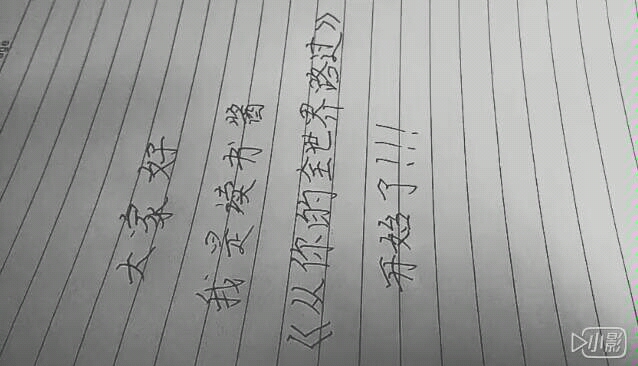 大家好
我是读书酱
《从你的全世界路过》
开始了!!!
小影